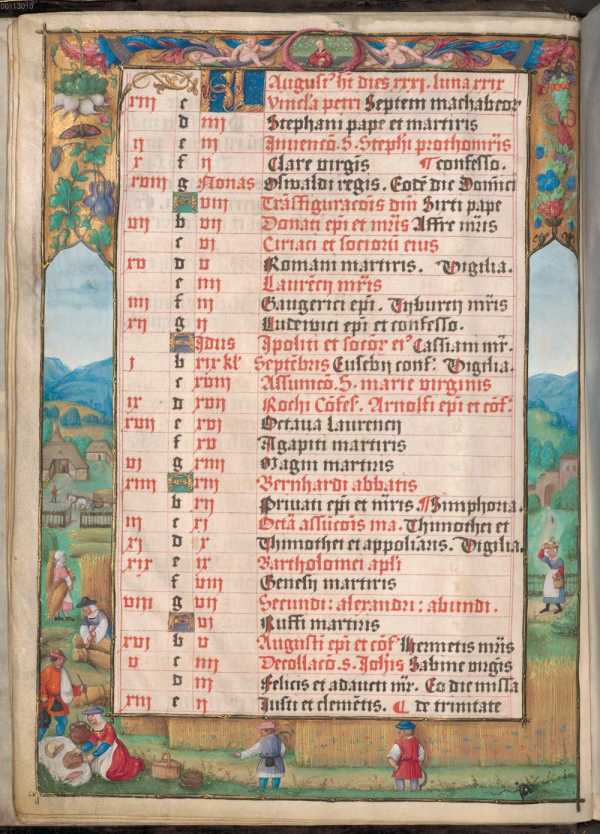 00113013
KL August9 ht dies xxxi. luna xxix
xiii c Vincła petri Septem machabeor
d iiii Stephani pape et martiris
ii e iii Invencõ. S. Stephi prothomrıs
x f ii Clare virgis ¶ confesso.
xviii g Nonas Oswaldi regis. Eodē die Dominici
A viii Trāsfiguracois dni Sixti pape
vii b vii Donati epi et mrıs Affre mrıs
c vi Ciriaci et sociorū eius
xv d v Romani martiris. Vigilia.
e iiii Laurēcii mrıs
iiii f iii Gaugerici epi. Tyburcii mrıs
xii g ii Ludewici epi et confesso.
A Idus Ipoliti et socor ei9 Cassiani mr.
i b xix kl' Septēbris Eusebii conf. Vigilia.
c xviii Assumcõ. S. marie virginis
ix d xvii Rochi Cōfes. Arnolfi epi et cōf.
xvii e xvi Octaua Laurencii
f xv Agapiti martiris
vi g xiiii Magni martiris
xiiii A xiii Bernhardi abbatis
b xii Privati epi et mrıs ¶ Simphoria.
iii c xi Octā assūcois ma. Thimothei et
xi d x Thimothei et appoliāris. Vigilia.
xix e ix Bartholomei apli
f viii Genesii martiris
viii g vii Secundi: alexandri: abundi.
A vi Ruffi martiris
xvi b v Augusti epi et cōf Hermetis mrıs
v c iiii Decollacõ. s. Johıs Sabine virgis
d iii Felicis et adaucti mr. Eo die missa
xiii e ii Iusti et clemētis. ¶ de trinitate